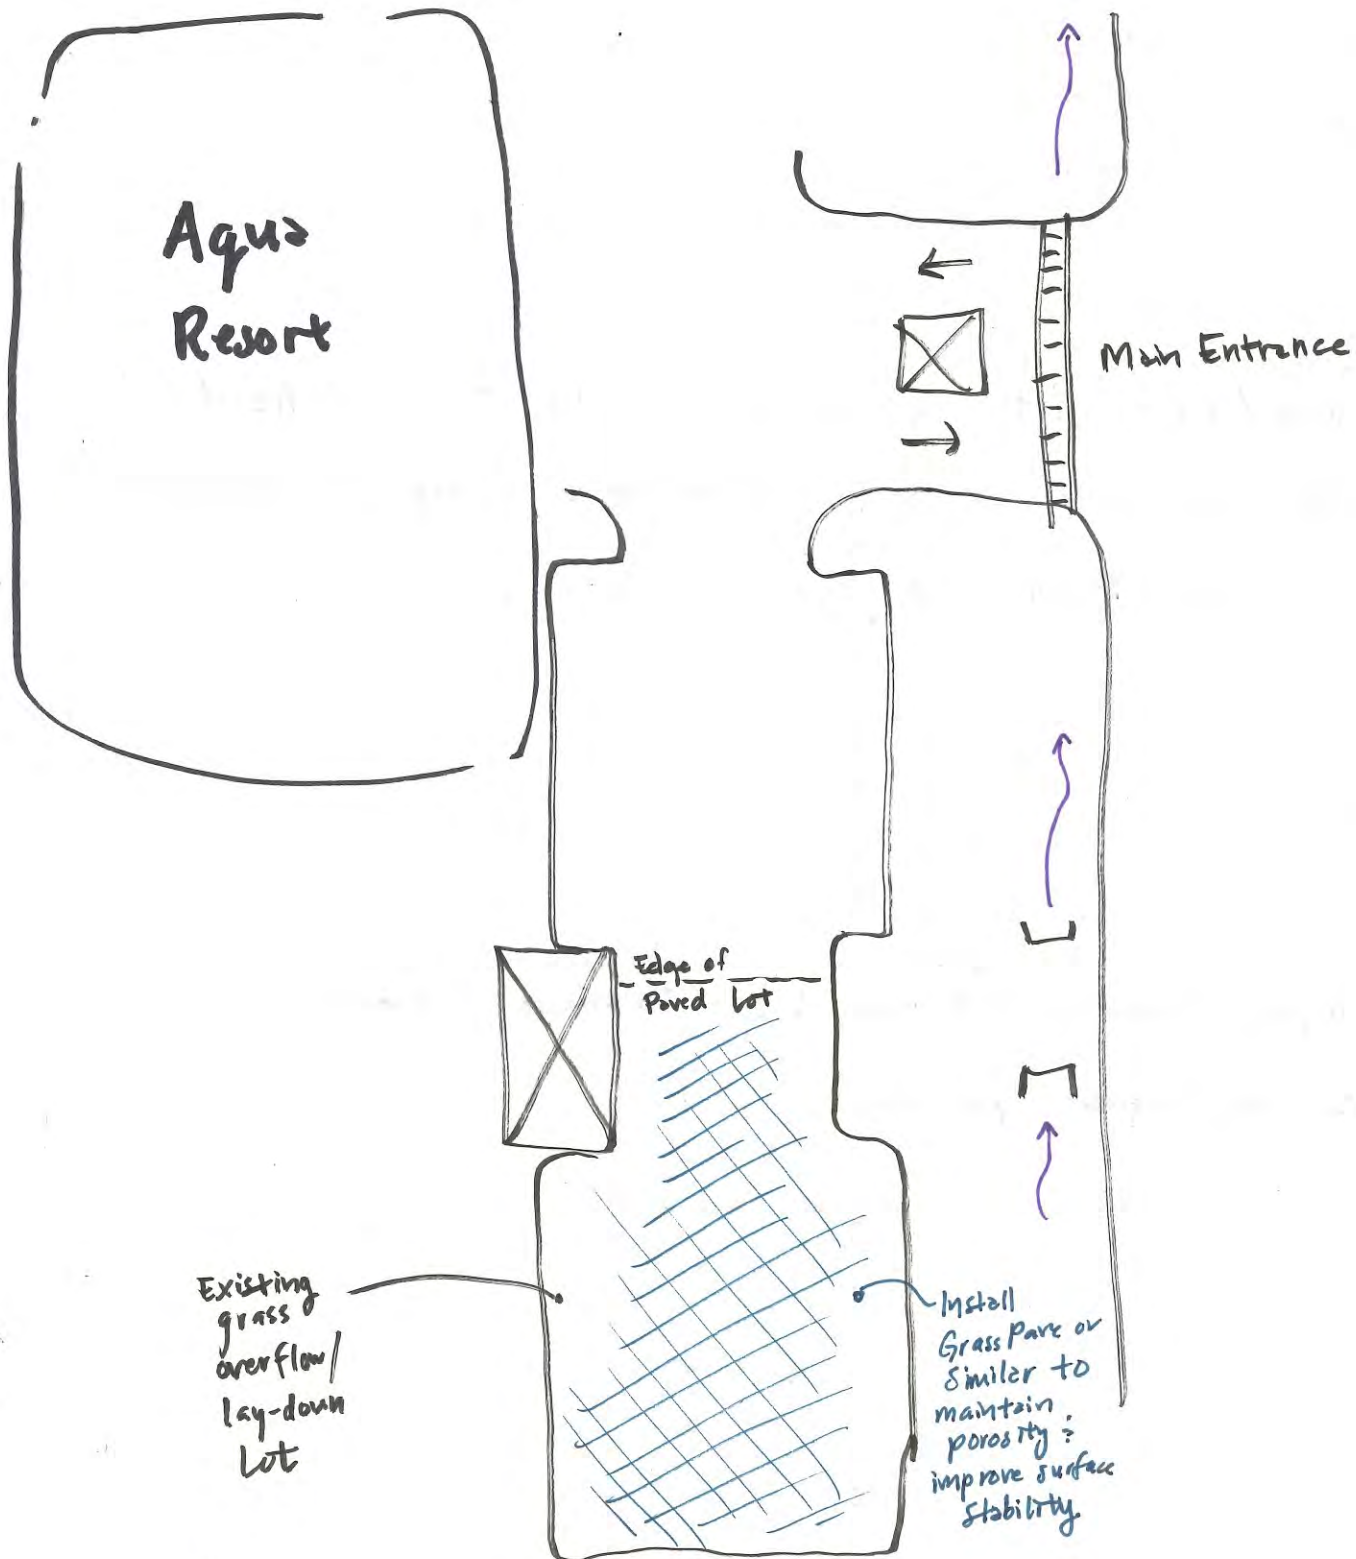 Aqua
Resort
Main Entrance
Edge of
Paved Lot
Existing
grass
overflow/
lay-down
Lot
Install
Grass Pave or
Similar to
maintain
porosity &
improve surface
stability